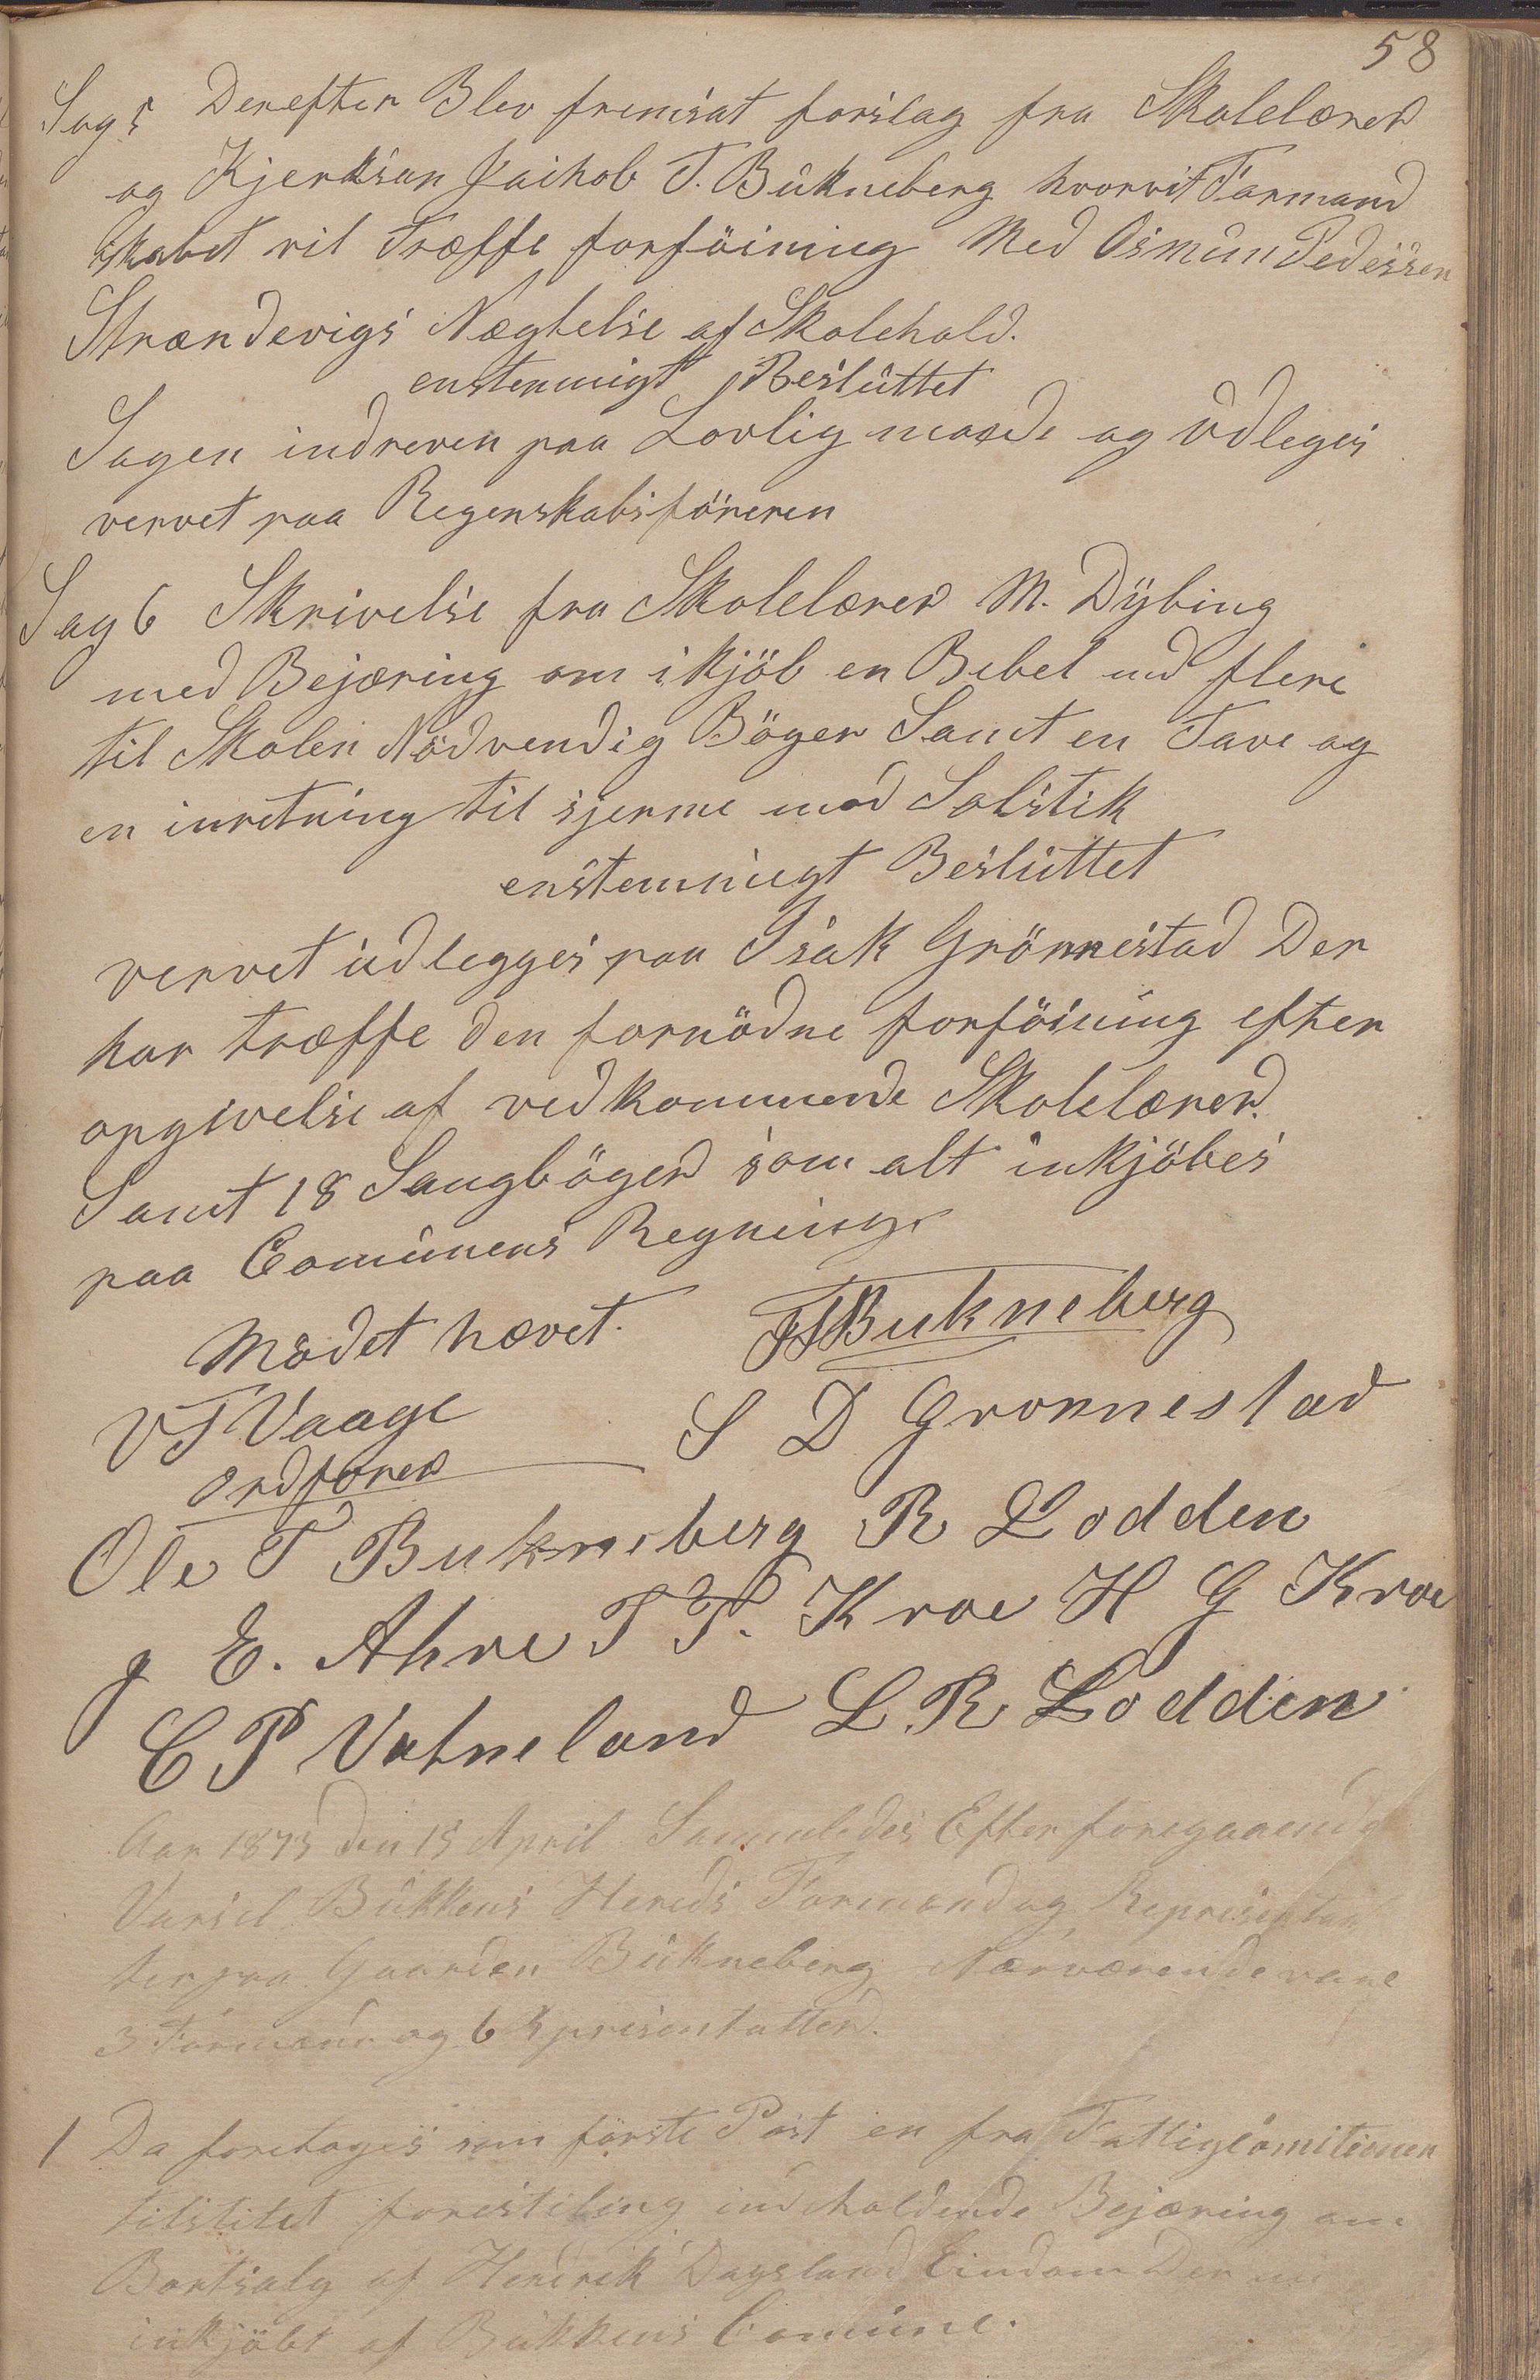 58
Sag 5 Derefter Blev fremsat forslag fra Skolelærer
og Kjerksan Jaihob T. Bukneberg hvorvit Formand
skabet vil træffe forföining Med Osmun Pedersen
Strandevigs Nægtelse af Skolehold.
enstemmigt Besluttet
Sagen indreven paa Lovlig maade og Udleges
vervet paa Regenskabsföreren
Sag 6 Skrivelse fra Skolelærer M. Dybing
med Bejæring om ikjöb en Bebel md flere
til Skolen Nödvendig Böger Samt en Tave og
en inretning til sjerme mod Solstik
enstemmigt Besluttet
vervet udlegges paa Isak Grönnestad Der
har træffe den fornödne forföining efter
opgivelse af vedkommende Skolelærer.
Samt 18 Sangböger som alt inkjöbes
paa Comunens Regning.
Mödet hævet. J T Bukneberg
V T Vaage S D Gronnestad
ordförer
Ole T Bukneberg R Lodden
J E. Ahre T T. Kroe H G Kroe
C P Vatneland L. R Lodden
Aar 1875 den 15 April Sammledes Efter foregaaende
Varsel Bukkens Hereds Formand og Represintan
ter paa Gaarden Bukneberg Nærværende vare
3 Formænd og 6 Represintatter.
1 Da foretoges som förste Post en fra Fattigcomitionen
tilstilet forestiling indholdende Bejæring om
Bortsalg af Hendrek Dagsland Eindom Der er
inkjöbt af Bukkens Comune.